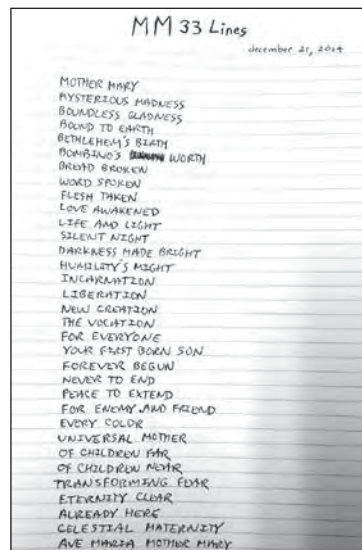 MM 33 Lines
december 21, 2014
MOTHER MARY
MYSTERIOUS MADNESS
BOUNDLESS GLADNESS
BOUND TO EARTH
BETHLEHEM'S BIRTH
BOMBINO'S WORTH
BREAD BROKEN
WORD SPOKEN
FLESH TAKEN
LOVE AWAKENED
LIFE AND LIGHT
SILENT NIGHT
DARKNESS MADE BRIGHT
HUMILITY'S MIGHT
INCARNATION
LIBERATION
NEW CREATION
THE VOCATION
FOR EVERYONE
YOUR FIRST BORN SON
FOREVER BEGUN
NEVER TO END
PEACE TO EXTEND
FOR ENEMY AND FRIEND
EVERY COLOR
UNIVERSAL MOTHER
OF CHILDREN FAR
OF CHILDREN NEAR
TRANSFORMING FEAR
ETERNITY CLEAR
ALREADY HERE
CELESTIAL MATERNITY
AVE MARIA MOTHER MARY